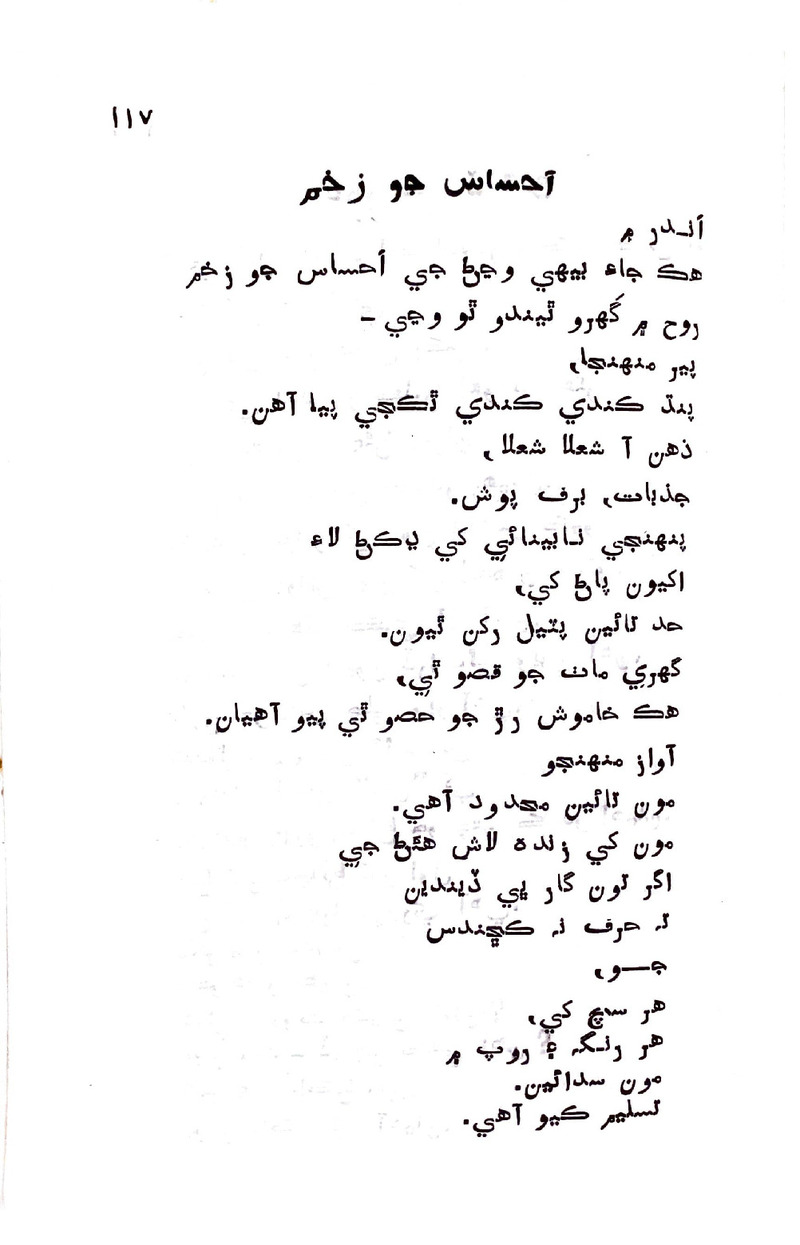 ١١٧
آحساس جو زخم
اَندر ۾
هڪ جاءِ بيهي وڃڻ جي اَحساس جو زخم
روح ۾ گَهرو ٿيندو ٿو وڃي –
پير منهنجا،
پنڌ ڪندي ڪندي ٿڪجي پيا آهن.
ذهن آ شعلا شعلا،
جذبات، برف پوش.
پنهنجي نابينائيِ کي ڍڪڻ لاءِ
اکيون پاڻ کي،
حد تائين پٽيل رکن ٿيون.
گهريِ مات جو قصو ٿيِ،
هڪ خاموش رڙ جو حصو ٿي پيو آهيان.
آواز منهنجو
مون تائين محدود آهي.
مون کي زنده لاش هئڻ جيِ
اگر تون گار ڀي ڏيندين
ته حرف نه ڪڇندس
جــو،
هر سچ کي،
هر رنگ ۽ روپ ۾
مون سدائين.
تسليم ڪيو آهي.